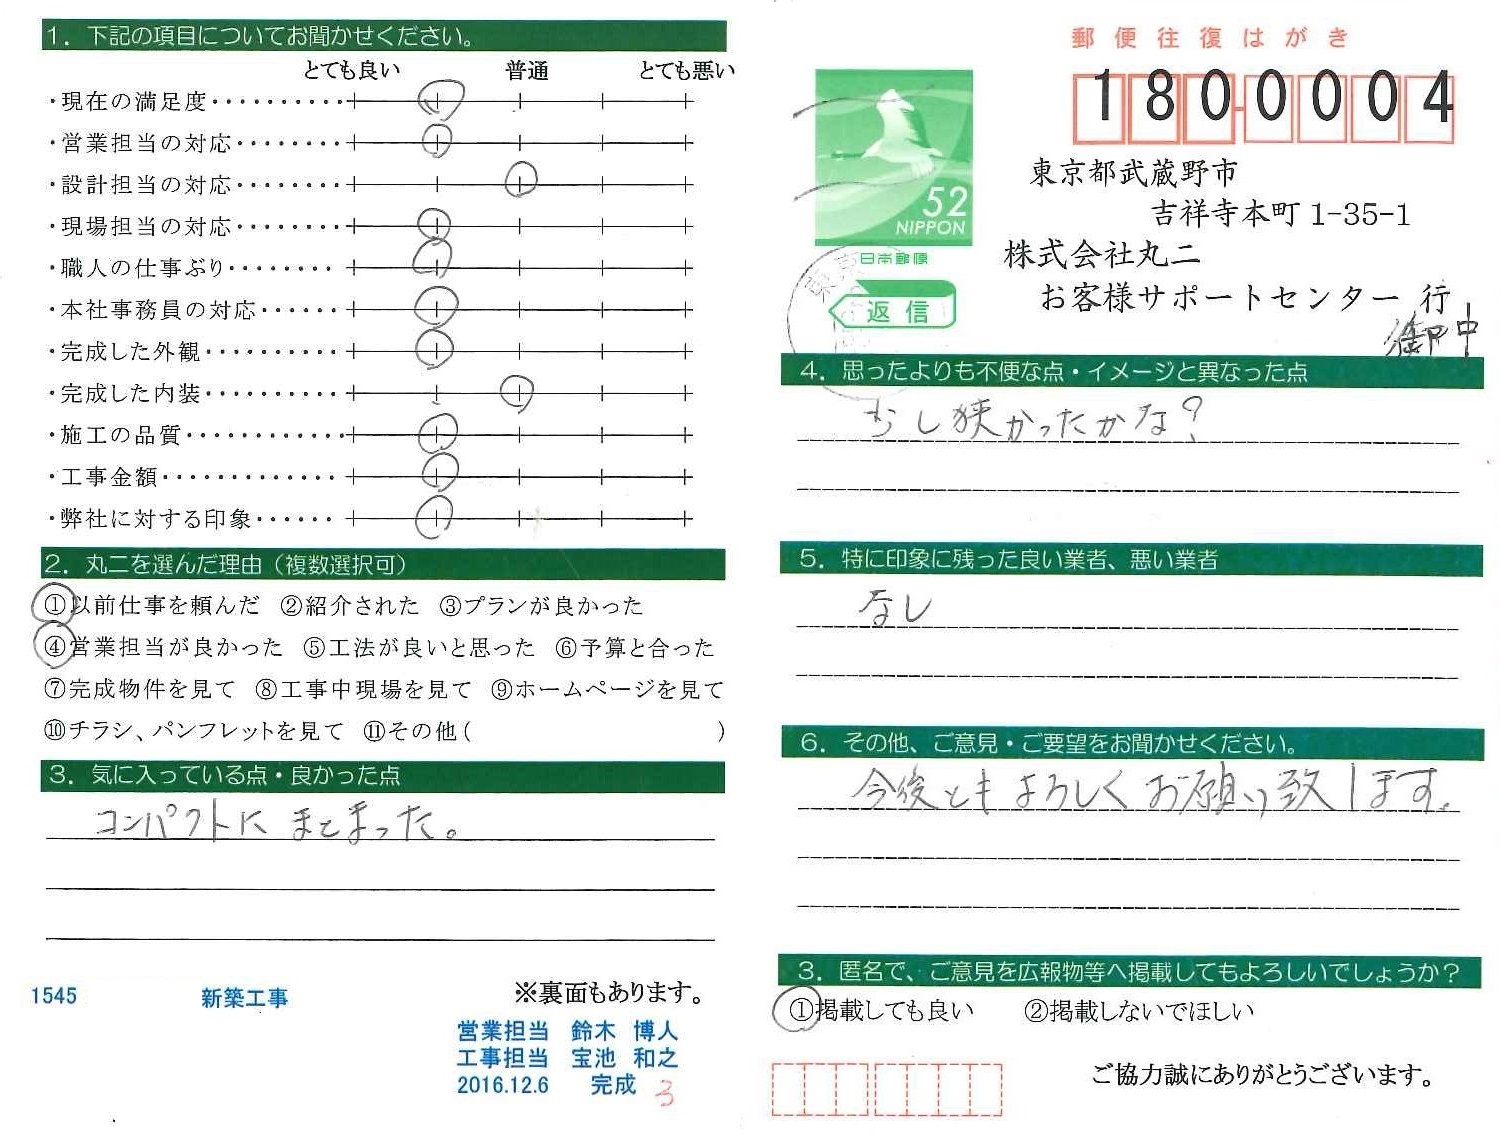 1．下記の項目についてお聞かせください。
とても良い 普通 とても悪い
・現在の満足度・・・・・・・・・・
・営業担当の対応・・・・・・・・
・設計担当の対応・・・・・・・・
・現場担当の対応・・・・・・・・
・職人の仕事ぶり・・・・・・・・
・本社事務員の対応・・・・・・
・完成した外観・・・・・・・・・・
・完成した内装・・・・・・・・・・
・施工の品質・・・・・・・・・・・・
・工事金額・・・・・・・・・・・・・
・弊社に対する印象・・・・・・
2．丸二を選んだ理由（複数選択可）
①以前仕事を頼んだ ②紹介された ③プランが良かった
④営業担当が良かった ⑤工法が良いと思った ⑥予算と合った
⑦完成物件を見て ⑧工事中現場を見て ⑨ホームページを見て
⑩チラシ、パンフレットを見て ⑪その他（ ）
3．気に入っている点・良かった点
コンパクトにまとまった。
1545 新築工事 ※裏面もあります。
営業担当 鈴木 博人
工事担当 宝池 和之
2016.12.6 完成 3
郵便往復はがき
180-0004
52
NIPPON
日本郵便
返信
東京都武蔵野市
吉祥寺本町 1-35-1
株式会社丸二
お客様サポートセンター 行
御中
4．思ったよりも不便な点・イメージと異なった点
少し狭かったかな？
5．特に印象に残った良い業者、悪い業者
なし
6．その他、ご意見・ご要望をお聞かせください。
今後ともよろしくお願い致します。
3．匿名で、ご意見を広報物等へ掲載してもよろしいでしょうか？
①掲載しても良い ②掲載しないでほしい
ご協力誠にありがとうございます。